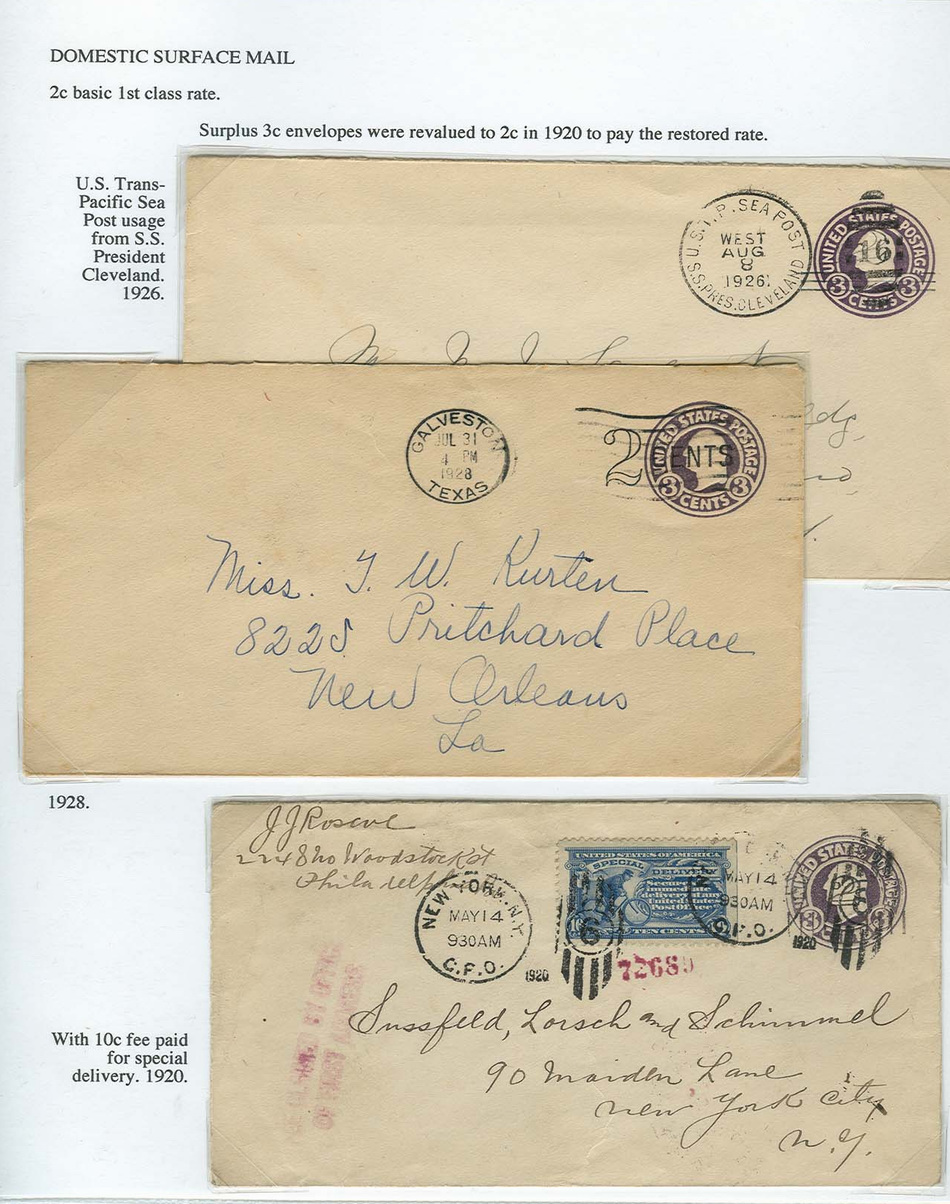 DOMESTIC SURFACE MAIL
2c basic 1st class rate.
Surplus 3c envelopes were revalued to 2c in 1920 to pay the restored rate.
U.S. Trans-
Pacific Sea
Post usage
from S.S.
President
Cleveland.
1926.
U.S.T.P. SEA POST
WEST
AUG
8
1926
S.S. PRES. CLEVELAND
UNITED STATES POSTAGE
16
3 CENTS 3
GALVESTON
JUL 31
4 PM
1928
TEXAS
2 CENTS
UNITED STATES POSTAGE
3 CENTS 3
Miss. T. W. Kurten
8225 Pritchard Place
New Orleans
La
1928.
J J Roseve
2248 No Woodstock St
Philadelphia
NEW YORK, N.Y.
MAY 14
930AM
G.P.O.
1920
UNITED STATES OF AMERICA
SPECIAL DELIVERY
Secures
immediate
delivery at any
United States
Post Office
TEN CENTS
6
MAY 14
930AM
G.P.O.
1920
UNITED STATES
3
72689
Sussfeld, Lorsch and Schimmel
90 Maiden Lane
New York City
N.Y.
With 10c fee paid
for special
delivery. 1920.